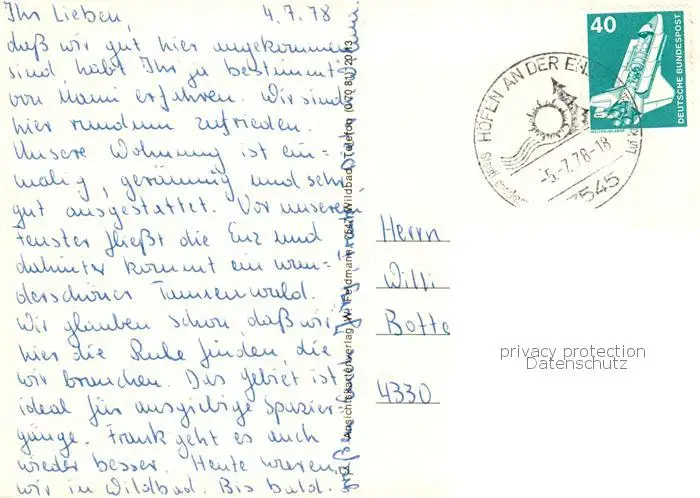 Ihr Lieben, 4.7.78
daß wir gut hier angekommen
sind, habt Ihr ja bestimmt
von Mami erfahren. Wir sind
hier rundum zufrieden.
Unsere Wohnung ist ein=
malig, geräumig und sehr
gut ausgestattet. Vor unserem
Fenster fließt die Enz und
dahinter kommt ein wun=
derschöner Tannenwald.
Wir glauben schon, daß wir
hier die Ruhe finden, die
wir brauchen. Das Gebiet ist
ideal für ausgiebige Spazier-
gänge. Frank geht es auch
wieder besser. Heute waren
wir in Wildbad. Bis bald.
Ansichtskartenverlag W. Feldmann, 7547 Wildbad, Telefon (0 70 81)
HÖFEN AN DER ENZ
-5.-7.78-18
7545
40
DEUTSCHE BUNDESPOST
WELTRAUMLABOR
Herrn
Willi
Botte
4330
privacy protection
Datenschutz